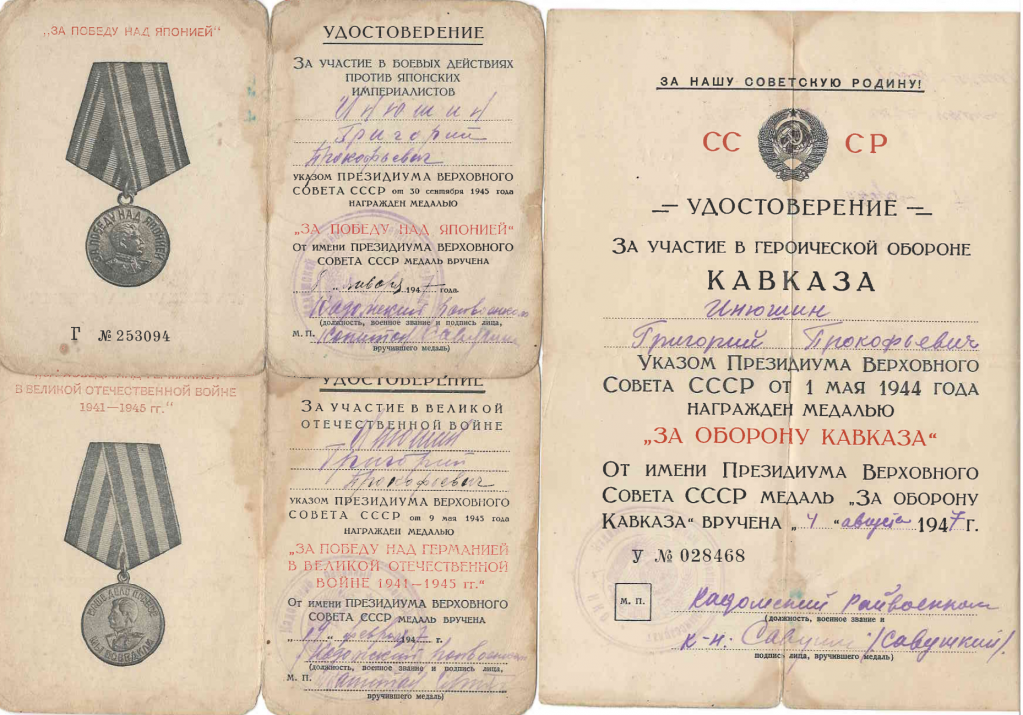 „ЗА ПОБЕДУ НАД ЯПОНИЕЙ"
ЗА ПОБЕДУ НАД ЯПОНИЕЙ
Г № 253094
УДОСТОВЕРЕНИЕ
ЗА УЧАСТИЕ В БОЕВЫХ ДЕЙСТВИЯХ
ПРОТИВ ЯПОНСКИХ
ИМПЕРИАЛИСТОВ
Инюшин
Григорий
Прокофьевич
УКАЗОМ ПРЕЗИДИУМА ВЕРХОВНОГО
СОВЕТА СССР от 30 сентября 1945 года
НАГРАЖДЕН МЕДАЛЬЮ
„ЗА ПОБЕДУ НАД ЯПОНИЕЙ"
ОТ ИМЕНИ ПРЕЗИДИУМА ВЕРХОВНОГО
СОВЕТА СССР МЕДАЛЬ ВРУЧЕНА
января 1947 года.
Кадомский райвоенком
(должность, военное звание и подпись лица,
М. П. капитан
вручившего медаль)
В ВЕЛИКОЙ ОТЕЧЕСТВЕННОЙ ВОЙНЕ
1941—1945 гг."
НАШЕ ДЕЛО ПРАВОЕ
МЫ ПОБЕДИЛИ
УДОСТОВЕРЕНИЕ
ЗА УЧАСТИЕ В ВЕЛИКОЙ
ОТЕЧЕСТВЕННОЙ ВОЙНЕ
Инюшин
Григорий
Прокофьевич
УКАЗОМ ПРЕЗИДИУМА ВЕРХОВНОГО
СОВЕТА СССР от 9 мая 1945 года
НАГРАЖДЕН МЕДАЛЬЮ
„ЗА ПОБЕДУ НАД ГЕРМАНИЕЙ
В ВЕЛИКОЙ ОТЕЧЕСТВЕННОЙ
ВОЙНЕ 1941—1945 гг."
ОТ ИМЕНИ ПРЕЗИДИУМА ВЕРХОВНОГО
СОВЕТА СССР МЕДАЛЬ ВРУЧЕНА
1947 г.
Кадомский райвоенком
(должность, военное звание и подпись лица,
М. П. Капитан
вручившего медаль)
ЗА НАШУ СОВЕТСКУЮ РОДИНУ!
СС СР
УДОСТОВЕРЕНИЕ
ЗА УЧАСТИЕ В ГЕРОИЧЕСКОЙ ОБОРОНЕ
КАВКАЗА
Инюшин
Григорий Прокофьевич
УКАЗОМ ПРЕЗИДИУМА ВЕРХОВНОГО
СОВЕТА СССР ОТ 1 МАЯ 1944 ГОДА
НАГРАЖДЕН МЕДАЛЬЮ
„ЗА ОБОРОНУ КАВКАЗА"
ОТ ИМЕНИ ПРЕЗИДИУМА ВЕРХОВНОГО
СОВЕТА СССР МЕДАЛЬ „ЗА ОБОРОНУ
КАВКАЗА" ВРУЧЕНА „4" августа 1947 г.
У № 028468
М. П.
Кадомский райвоенком
(должность, военное звание и
к-н. (Савушкин).
подпись лица, вручившего медаль)